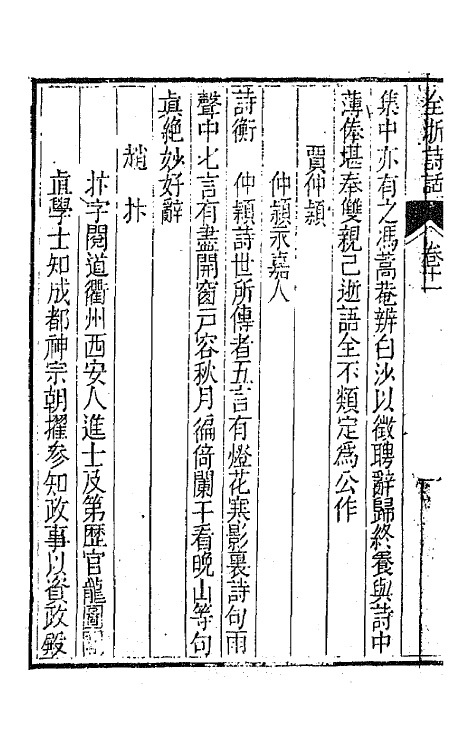 全浙詩話 卷十一
集中亦有之馮蒿菴辨白沙以徵聘辭歸終養與詩中
薄俸堪奉雙親已逝語全不類定為公作
賈仲頴
仲頴永嘉人
詩衡 仲頴詩世所傳者五言有燈花寒影裏詩句雨
聲中七言有盡開窗戶容秋月徧倚闌干看晚山等句
眞絶妙好辭
趙抃
抃字閱道衢州西安人進士及第歴官龍圖閣
直學士知成都神宗朝擢參知政事以資政殿